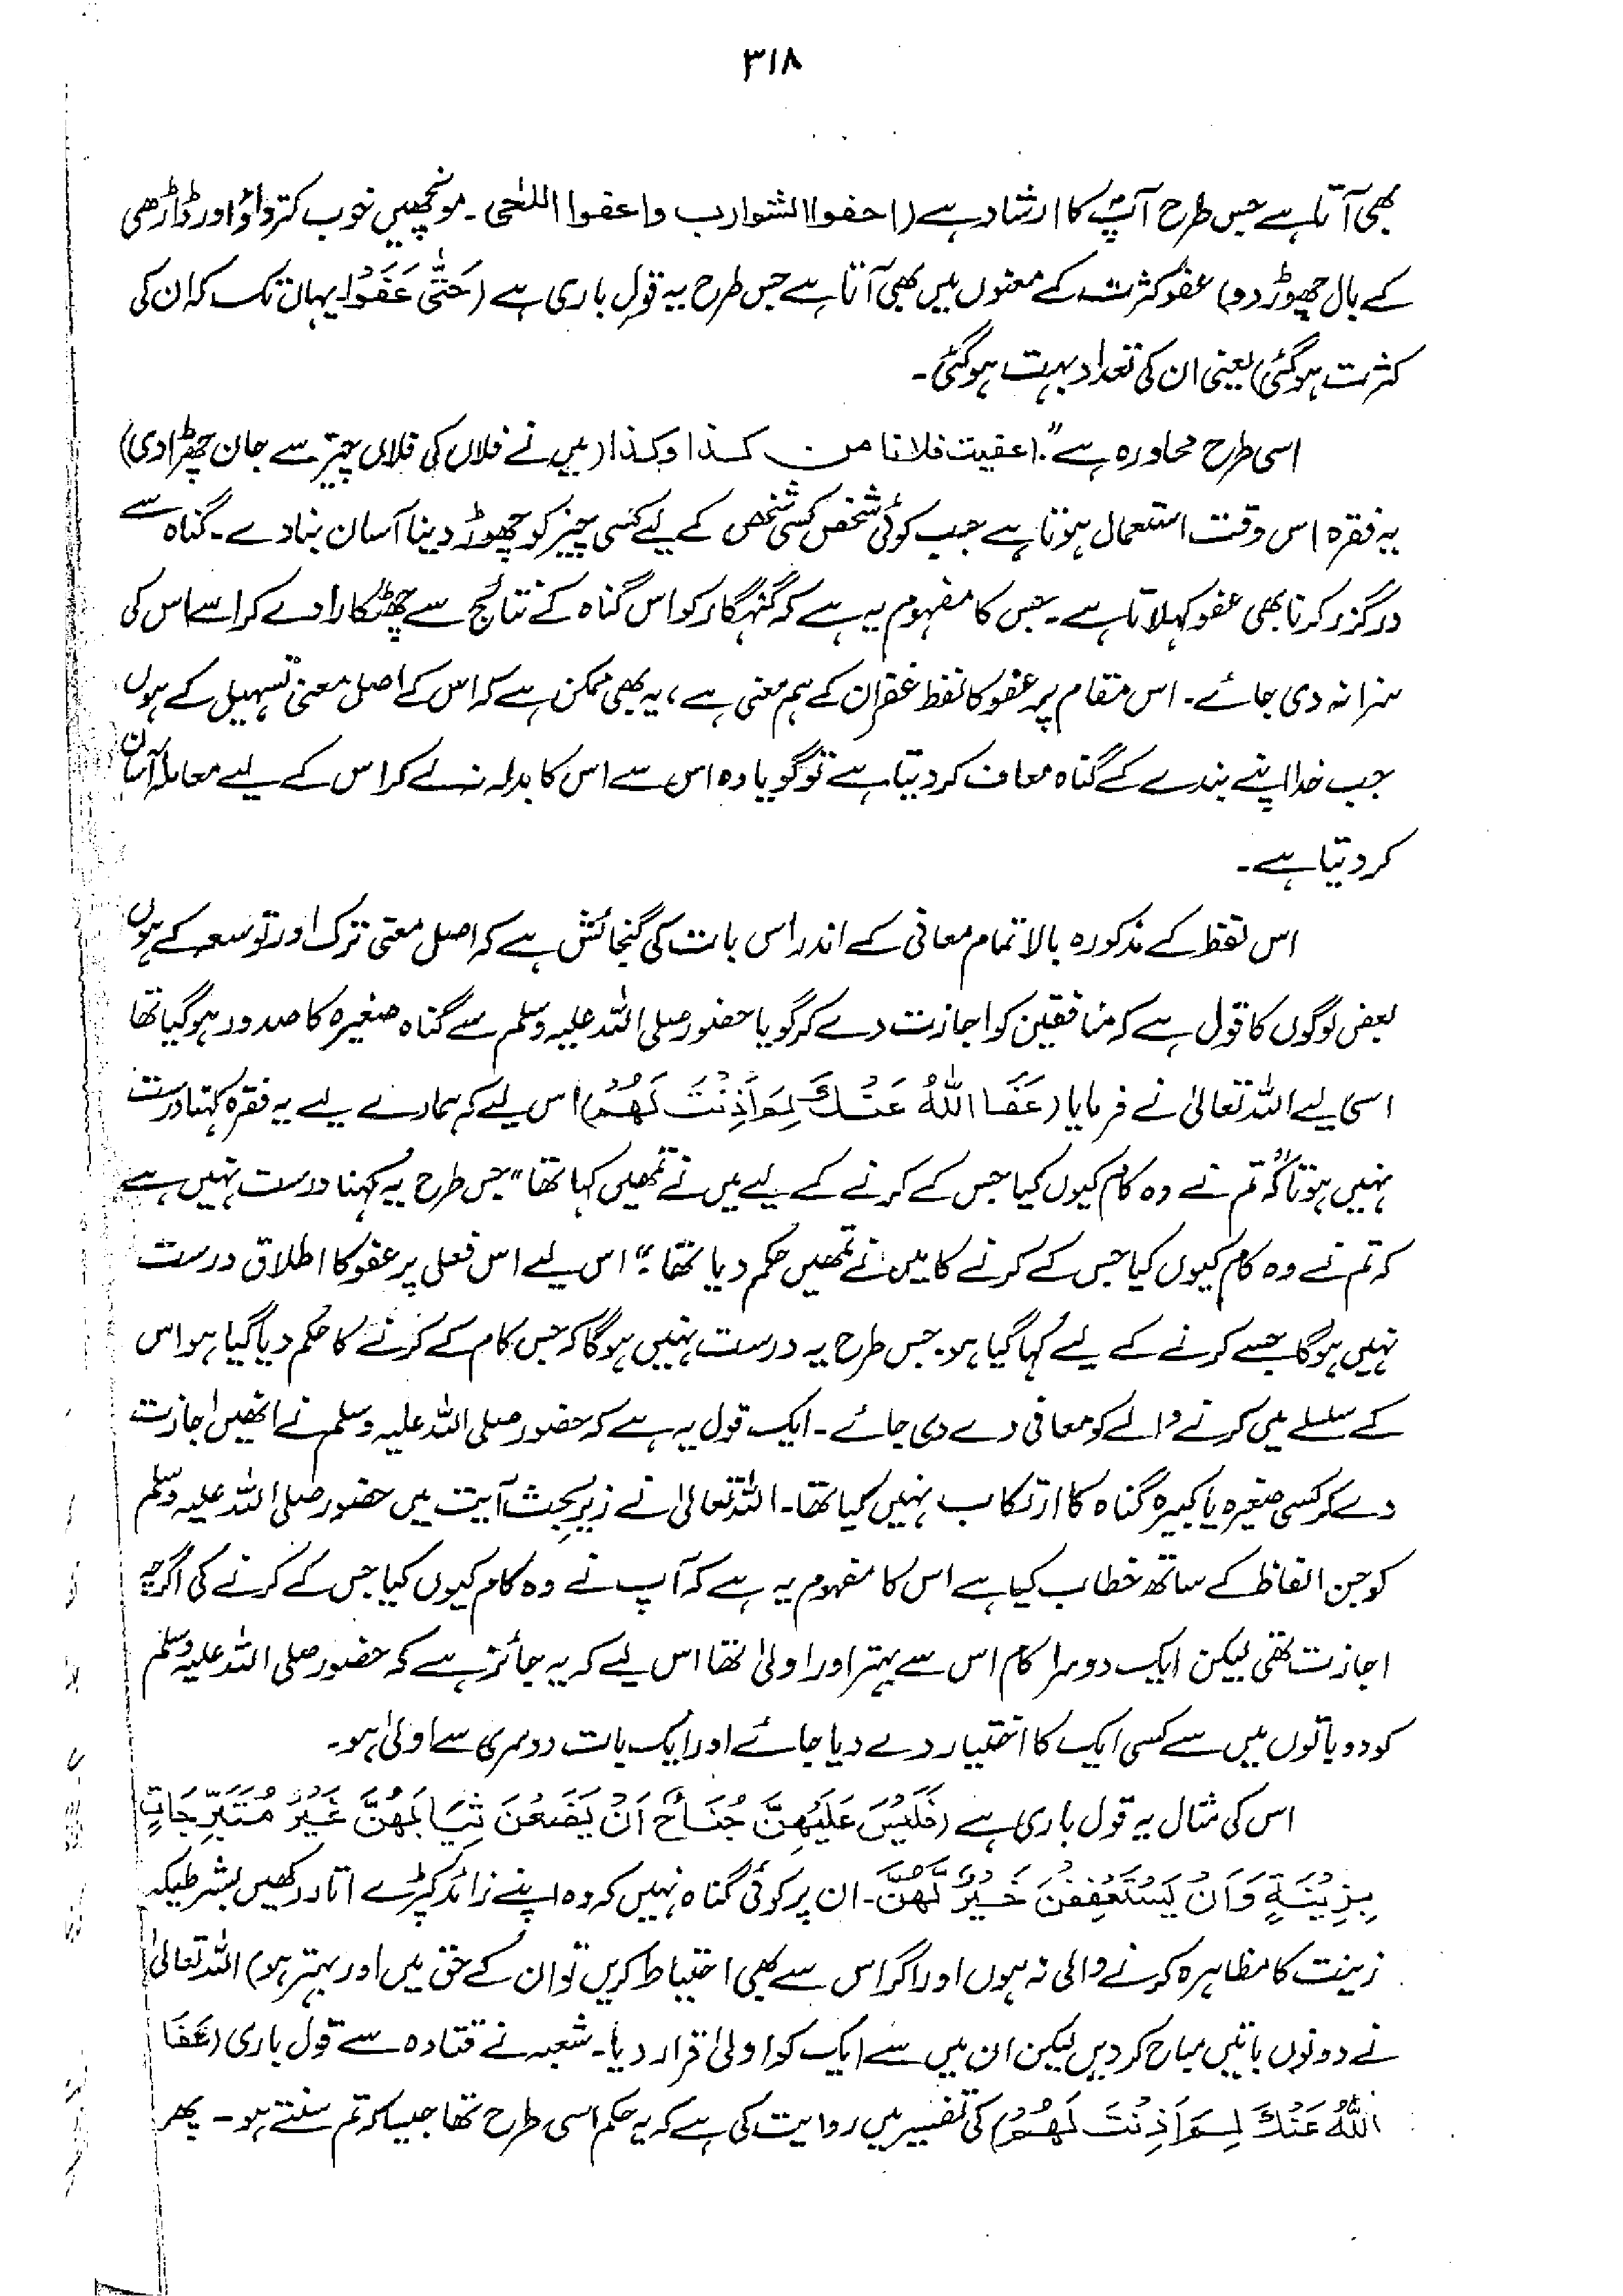 ۳۱۸
بھی آتا ہے جس طرح آپؐ کا ارشاد ہے (احفوا الشوارب واعفوا اللحٰی۔ مونچھیں خوب کترواؤ اور ڈاڑھی
کے بال چھوڑ دو) عفو کثرت کے معنوں میں بھی آتا ہے جس طرح یہ قولِ باری ہے (حَتّٰی عَفَوْا یہاں تک کہ ان کی
کثرت ہوگئی) یعنی ان کی تعداد بہت ہوگئی۔
اسی طرح محاورہ ہے "اعفیت فلانا من کذا وکذا (میں نے فلاں کی فلاں چیز سے جان چھڑا دی)
یہ فقرہ اس وقت استعمال ہوتا ہے جب کوئی شخص کسی شخص کے لیے کسی چیز کو چھوڑ دینا آسان بنا دے۔ گناہ سے
درگزر کرنا بھی عفو کہلاتا ہے۔ جس کا مفہوم یہ ہے کہ گنہگار کو اس گناہ کے نتائج سے چھٹکارا دے کر اسے اس کی
سزا نہ دی جائے۔ اس مقام پر عفو کا لفظ غفران کے ہم معنی ہے، یہ بھی ممکن ہے کہ اس کے اصل معنی تسہیل کے ہوں
جب خدا اپنے بندے کے گناہ معاف کر دیتا ہے تو گویا وہ اس سے اس کا بدلہ نہ لے کر اس کے لیے معاملہ آسان
کر دیتا ہے۔
اس لفظ کے مذکورہ بالا تمام معانی کے اندر اس بات کی گنجائش ہے کہ اصل معنی ترک اور توسعہ کے ہوں
بعض لوگوں کا قول ہے کہ منافقین کو اجازت دے کر گویا حضور صلی اللہ علیہ وسلم سے گناہ صغیرہ کا صدور ہوگیا تھا
اسی لیے اللہ تعالیٰ نے فرمایا (عَفَا اللّٰہُ عَنْکَ لِمَ اَذِنْتَ لَھُمْ) اس لیے کہ ہمارے لیے یہ فقرہ کہنا درست
نہیں ہوتا کہ "تم نے وہ کام کیوں کیا جس کے کرنے کے لیے میں نے تمھیں کہا تھا" جس طرح یہ کہنا درست نہیں ہے
کہ تم نے وہ کام کیوں کیا جس کے کرنے کا میں نے تمھیں حکم دیا تھا"۔ اس لیے اس فعل پر عفو کا اطلاق درست
نہیں ہوگا جسے کرنے کے لیے کہا گیا ہو۔ جس طرح یہ درست نہیں ہوگا کہ جس کام کے کرنے کا حکم دیا گیا ہو اس
کے سلسلے میں کرنے والے کو معافی دے دی جائے۔ ایک قول یہ ہے کہ حضور صلی اللہ علیہ وسلم نے انھیں اجازت
دے کر کسی صغیرہ یا کبیرہ گناہ کا ارتکاب نہیں کیا تھا۔ اللہ تعالیٰ نے زیرِ بحث آیت میں حضور صلی اللہ علیہ وسلم
کو جن الفاظ کے ساتھ خطاب کیا ہے اس کا مفہوم یہ ہے کہ آپ نے وہ کام کیوں کیا جس کے کرنے کی اگرچہ
اجازت تھی لیکن ایک دوسرا کام اس سے بہتر اور اولیٰ تھا اس لیے کہ یہ جائز ہے کہ حضور صلی اللہ علیہ وسلم
کو دو باتوں میں سے کسی ایک کا اختیار دے دیا جائے اور ایک بات دوسری سے اولیٰ ہو۔
اس کی مثال یہ قول باری ہے (فَلَیْسَ عَلَیْھِنَّ جُنَاحٌ اَنْ یَضَعْنَ ثِیَابَھُنَّ غَیْرَ مُتَبَرِّجَاتٍ
بِزِیْنَۃٍ وَاَنْ یَسْتَعْفِفْنَ خَیْرٌ لَّھُنَّ۔ ان پر کوئی گناہ نہیں کہ وہ اپنے زائد کپڑے اتار رکھیں بشرطیکہ
زینت کا مظاہرہ کرنے والی نہ ہوں اور اگر اس سے بھی احتیاط کریں تو ان کے حق میں اور بہتر ہو) اللہ تعالیٰ
نے دونوں باتیں مباح کر دیں لیکن ان میں سے ایک کو اولیٰ قرار دیا۔ شعبہ نے قتادہ سے قول باری (عَفَا
اللّٰہُ عَنْکَ لِمَ اَذِنْتَ لَھُمْ) کی تفسیر میں روایت کی ہے کہ یہ حکم اسی طرح تھا جیسا کہ تم سنتے ہو۔ پھر